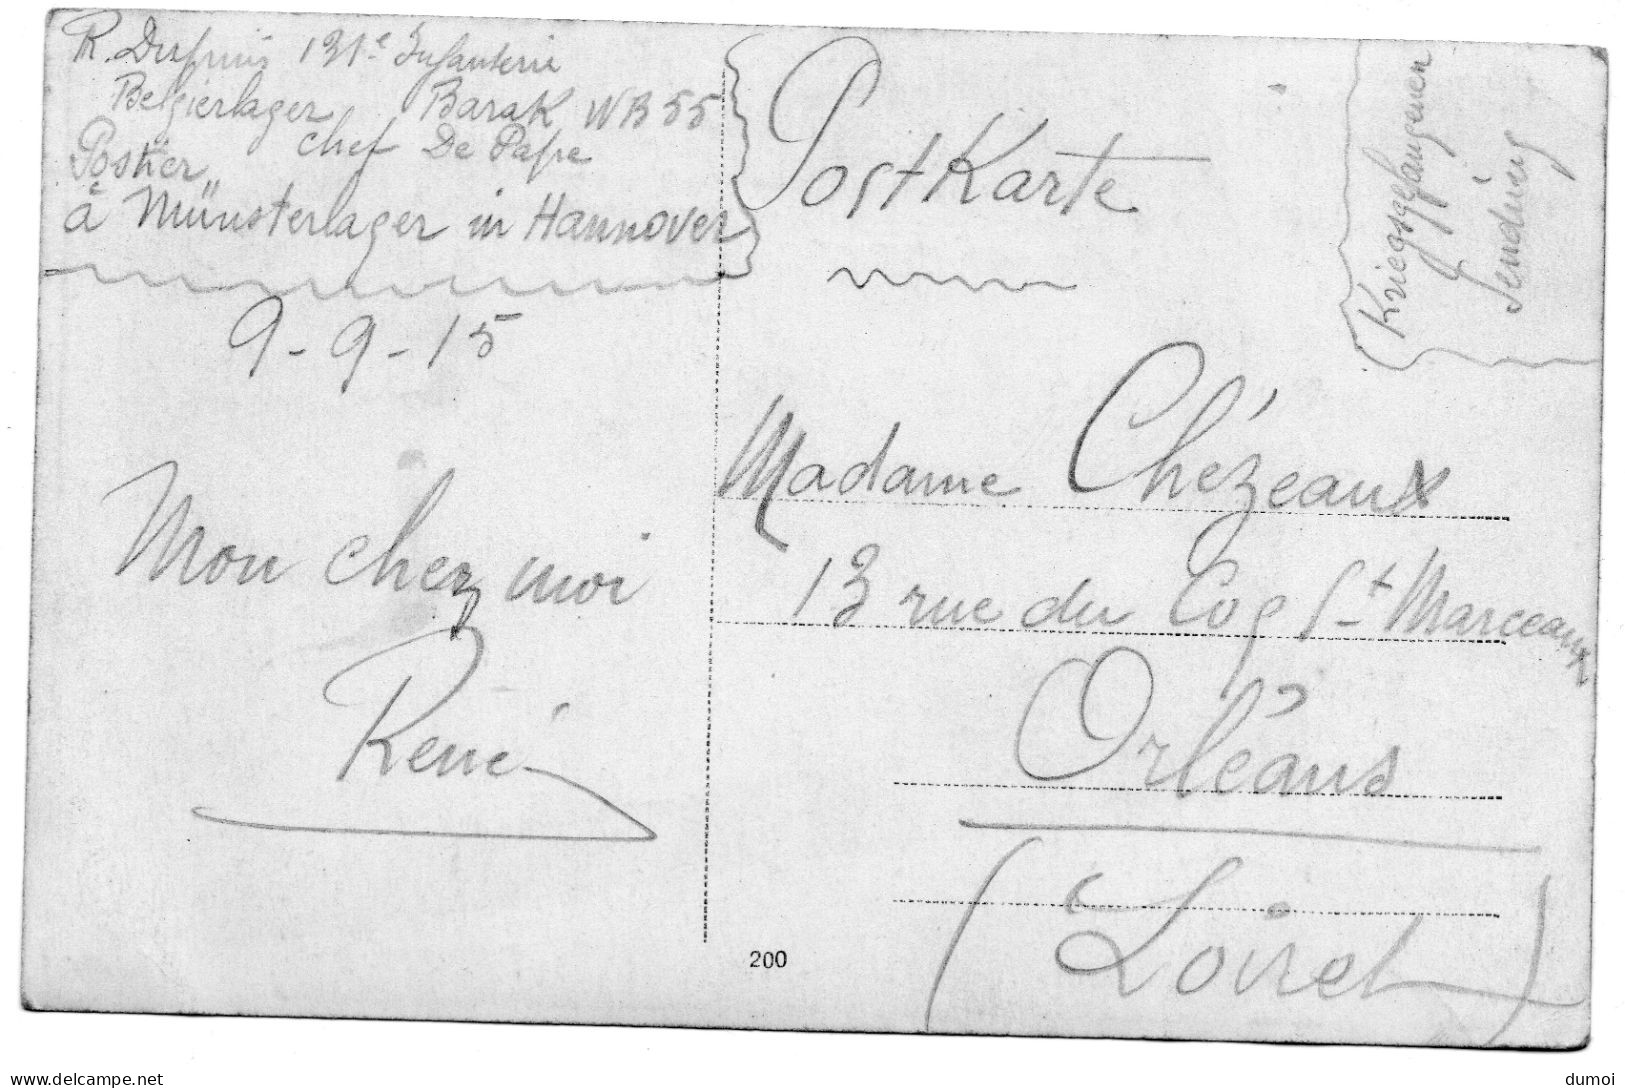 R. Dupuis 131e Infanterie
Belgierlager Barak WB 55
chef De Pape
Postier
à Münsterlager in Hannover
9-9-15
Mon chez moi
René
PostKarte
Kriegsgefangenen
Sendung
Madame Chézeaux
13 rue du Coq St Marceaux
Orléans
(Loiret)
200
www.delcampe.net
dumoi